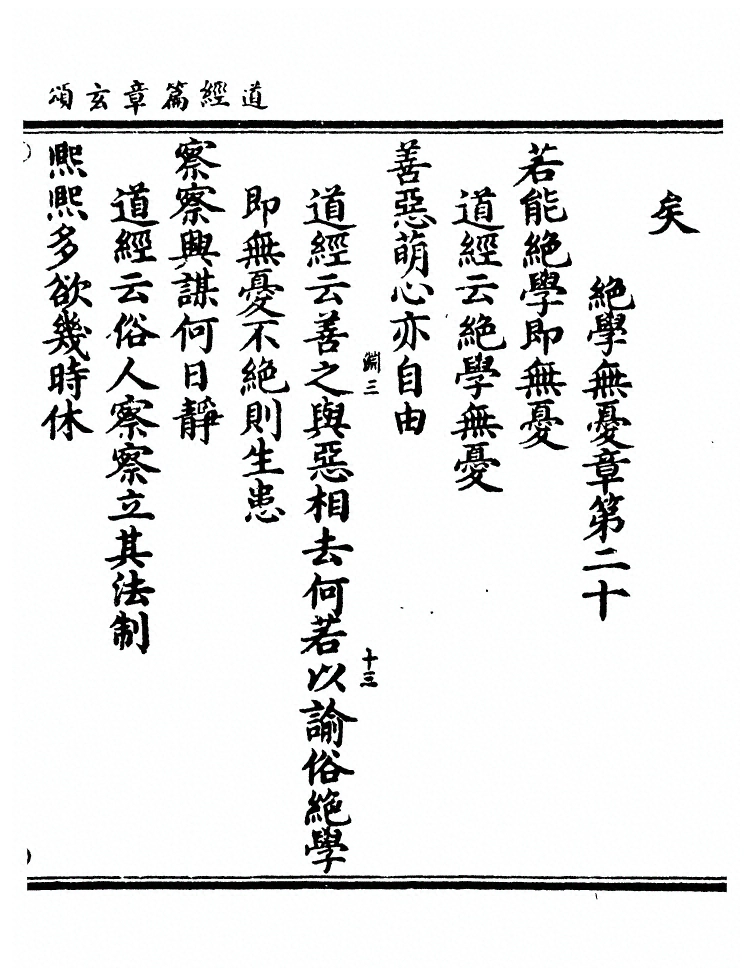 道經篇章玄頌
矣
絶學無憂章第二十
若能絶學即無憂
道經云絶學無憂
善惡萌心亦自由
淵三
十三
道經云善之與惡相去何若以諭俗絶學
即無憂不絶則生患
察察興謀何日靜
道經云俗人察察立其法制
熙熙多欲幾時休